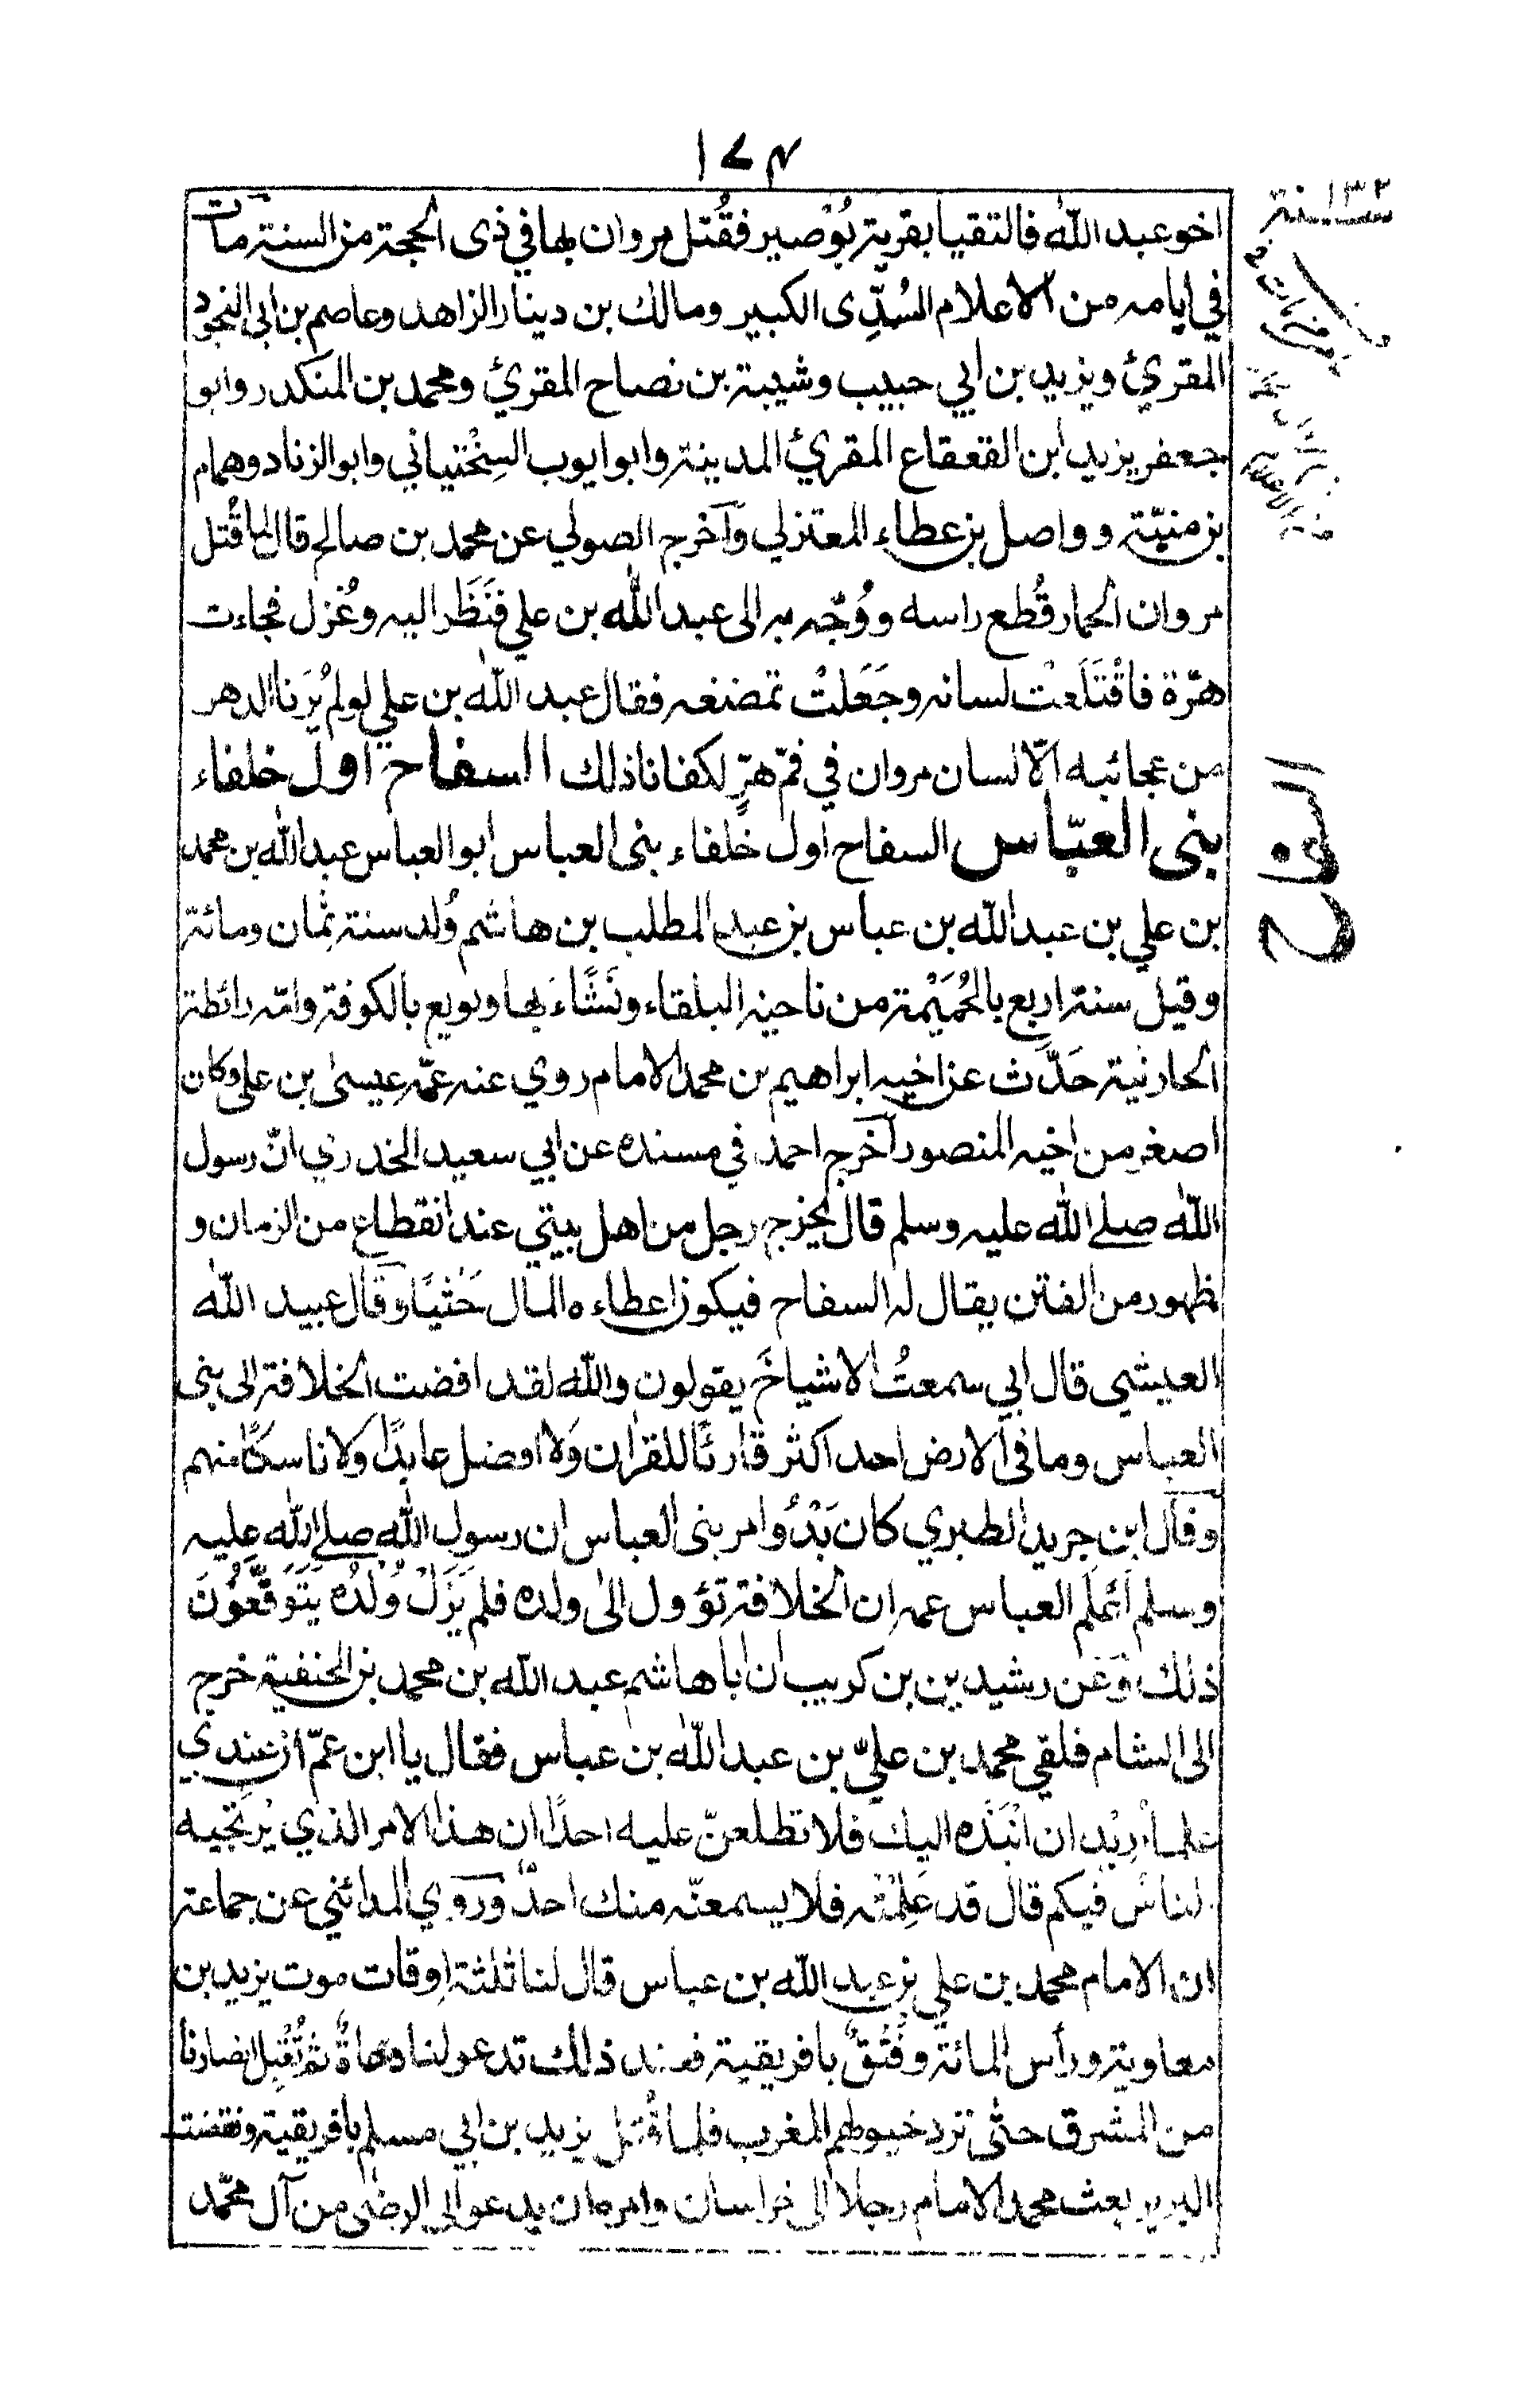 ١٧٤
سنة ١٣٢
اخو عبد الله فالتقيا بقرية بُوْصير فقُتل مروان بها في ذى الحجة من السنة مات
في ايامه من الاعلام السُدِّى الكبير ومالك بن دينار الزاهد وعاصم بن ابى النجود
المقرئ ويزيد بن ابي حبيب وشيبة بن نصاح المقرئ ومحمد بن المنكدر وابو
جعفر يزيد ابن القعقاع المقرئ المدينة وابو ايوب السِخْتياني وابو الزناد وهمام
بن منبّه وواصل بن عطاء المعتزلي وآخرج الصولي عن محمد بن صالح قال لما قُتل
مروان الحمار قُطع راسه ووُجّه به الى عبد الله بن علي فنَظَر اليه وغُزل فجاءت
هرّة فاقْتَلَعَت لسانه وجَعَلتْ تمضغه فقال عبد الله بن علي لو لم يُرَنا الدهر
من عجائبه الّا لسان مروان في فم هرٍّ لكفانا ذلك السفاح اول خلفاء
بنى العبّاس السفاح اول خلفاء بنى العباس ابو العباس عبد الله بن محمد
السفاح
بن علي بن عبد الله بن عباس بن عبد المطلب بن هاشم وُلد سنة ثمان ومائة
وقيل سنة اربع بالحُمَيْمة من ناحية البلقاء ونَشَاءَ بها وبويع بالكوفة وامّه رائطة
الحارثية حَدَّث عن اخيه ابراهيم بن محمد الامام روي عنه عمّه عيسىٰ بن على وكان
اصغر من اخيه المنصور آخرج احمد في مسنده عن ابي سعيد الخدري انّ رسول
الله صلے الله عليه وسلم قال يخرج رجل من اهل بيتي عند انقطاع من الزمان و
ظهور من الفتن يقال له السفاح فيكون اعطاءه المال حَثْيًا وقال عبيد الله
العيشي قال ابي سمعتُ الاشياخَ يقولون والله لقد افضت الخلافة الى بنى
العباس وما فى الارض احد اكثر قارئًا للقرآن وَلا افضل عابدًا ولا ناسكًا منهم
وقال ابن جرير الطبري كان بَدْؤ امر بنى العباس ان رسول الله صلے الله عليه
وسلم اَعْلَم العباس عمه ان الخلافة تؤول الىٰ ولده فلم يَزَلْ وُلْدُه يَتَوَقَّعُوْنَ
ذلك وَعَن رشيدين بن كريب ان ابا هاشم عبد الله بن محمد بن الحنفية خرج
الى الشام فلقي محمد بن عليّ بن عبد الله بن عباس فقال يا ابن عمّ ان عندي
علما اريد ان انْبَذه اليك فلا تطلعنّ عليه احدًا ان هذا الامر الذي يَرْتجيه
الناس فيكم قال قد عَلِمْتُه فلا يسمعنّه منك احدٌ ورَوي المدائني عن جماعة
ان الامام محمد بن علي بن عبد الله بن عباس قال لنا ثلثة اوقات موت يزيد بن
معاوية ورأس المائة وفُتِقٌ بافريقية فعند ذلك تدعو لنا دعاةٌ ثم تُقْبِل انصارنا
من المشرق حتّى ترد خيولهم المغرب فلما قُتل يزيد بن ابي مسلم بافريقية ونقضت
البربر بعث محمد الامام رجلا الى خراسان وامره ان يدعو الى الرضىٰ من آل محمّد